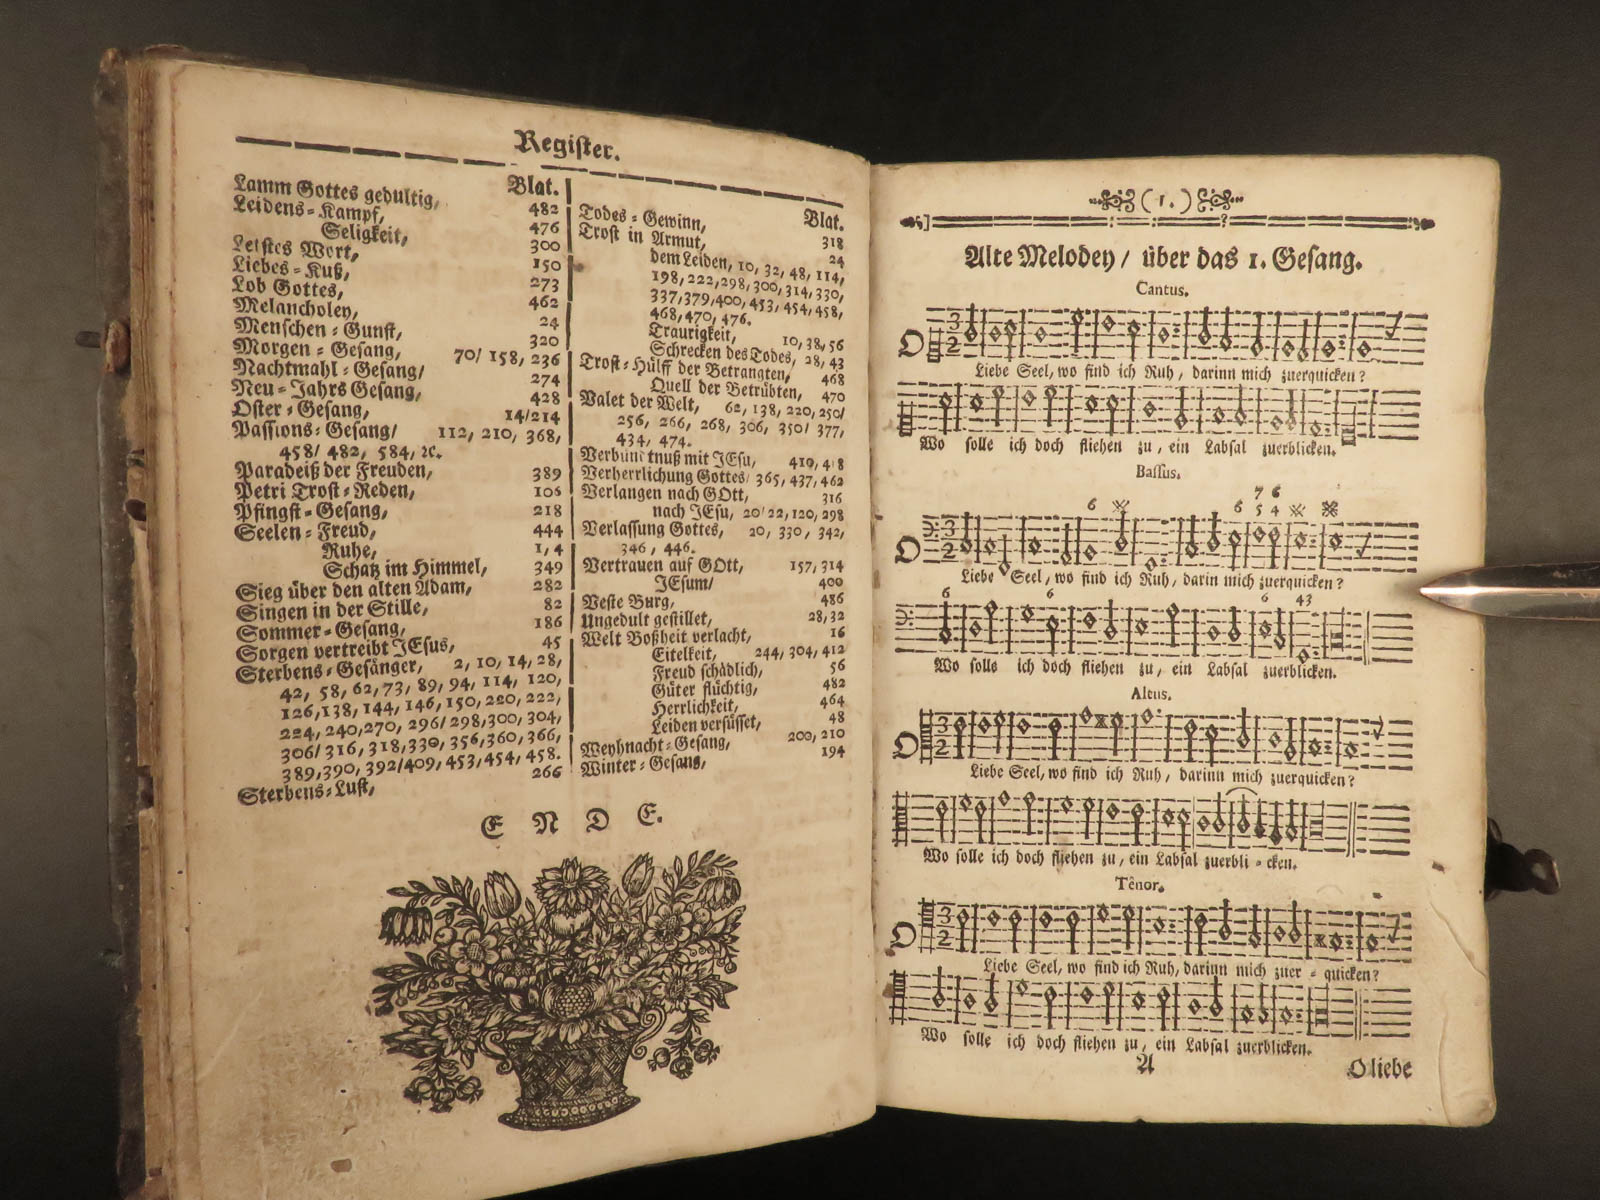 Register.
Blat.
Lamm Gottes gedultig, 482
Leidens-Kampf, 476
Seligkeit, 300
Letstes Wort, 150
Liebes-Kuß, 273
Lob Gottes, 462
Melancholey, 24
Menschen-Gunst, 320
Morgen-Gesang, 70/ 158, 236
Nachtmahl-Gesang/ 274
Neu-Jahrs Gesang, 428
Oster-Gesang, 14/214
Passions-Gesang/ 112, 210, 368,
458/ 482, 584, ꝛc.
Paradeiß der Freuden, 389
Petri Trost-Reden, 108
Pfingst-Gesang, 218
Seelen-Freud, 444
Ruhe, 1, 4
Schatz im Himmel, 349
Sieg über den alten Adam, 282
Singen in der Stille, 82
Sommer-Gesang, 186
Sorgen vertreibt JEsus, 45
Sterbens-Gesänger, 2, 10, 14, 28,
42, 58, 62, 73, 89, 94, 114, 120,
126, 138, 144, 146, 150, 220, 222,
224, 240, 270, 296/ 298, 300, 304,
306/ 316, 318, 330, 356, 360, 366,
389, 390, 392/ 409, 453, 454, 458.
Sterbens-Lust, 266
Blat.
Todes-Gewinn, 318
Trost in Armut, 24
dem Leiden, 10, 32, 48, 114,
198, 222, 298, 300, 314, 330,
337, 379, 400, 453, 454, 458,
468, 470, 476.
Traurigkeit, 10, 38, 56
Schrecken des Todes, 28, 43
Trost-Hülff der Betrangten, 468
Quell der Betrübten, 470
Valet der Welt, 62, 138, 220, 250/
256, 266, 268, 306, 350/ 377,
434, 474.
Verbündtnuß mit JEsu, 410, 418
Verherrlichung Gottes/ 365, 437, 462
Verlangen nach GOtt, 316
nach JEsu, 20/ 22, 120, 298
Verlassung Gottes, 20, 330, 342,
346, 446.
Vertrauen auf GOtt, 157, 314
JEsum/ 400
Veste Burg, 486
Ungedult gestillet, 28, 32
Welt Boßheit verlacht, 16
Eitelkeit, 244, 304, 412
Freud schädlich, 56
Güter flüchtig, 482
Herrlichkeit, 464
Leiden versüsset, 48
Weyhnacht-Gesang, 200, 210
Winter-Gesang, 194
E N D E.
(1.)
Alte Melodey/ über das 1. Gesang.
Cantus.
O Liebe Seel, wo find ich Ruh, darinn mich zuerquicken?
Wo solle ich doch fliehen zu, ein Labsal zuerblicken.
Bassus.
6 7 6
6 5 4
O Liebe Seel, wo find ich Ruh, darin mich zuerquicken?
6 6 6 43
Wo solle ich doch fliehen zu, ein Labsal zuerblicken.
Altus.
O Liebe Seel, wo find ich Ruh, darinn mich zuerquicken?
Wo solle ich doch fliehen zu, ein Labsal zuerbli-cken.
Tênor.
O Liebe Seel, wo find ich Ruh, darinn mich zuer-quicken?
Wo solle ich doch fliehen zu, ein Labsal zuerblicken.
A O liebe